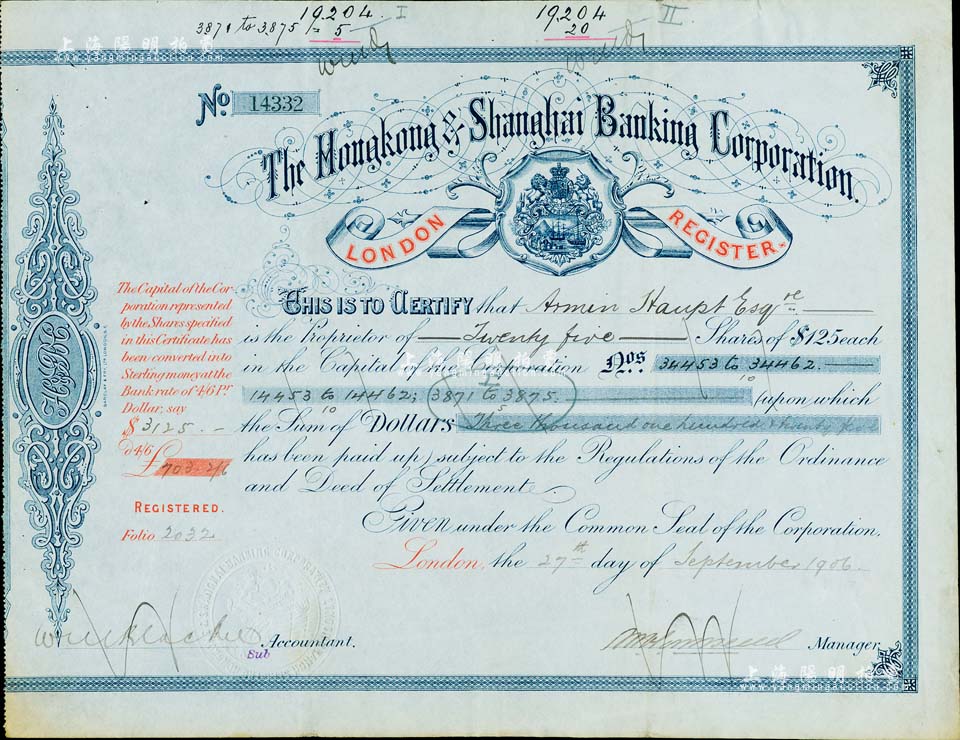 19,204. I
3871 to 3875 /- 5
19,204 II
20
上海陽明拍賣
www.yangmingauction.com
No. 14332
The Hongkong & Shanghai Banking Corporation.
LONDON REGISTER.
The Capital of the Cor
poration represented
by the Shares specified
in this Certificate has
been converted into
Sterling money at the
Bank rate of 4/6 Pr.
Dollar, say
$ 3125.-
@ 4/6
£ 703.2/6
REGISTERED.
Folio 2032
THIS IS TO CERTIFY that Armin Haupt Esqre
is the Proprietor of Twenty five Shares of $125 each
in the Capital of the Corporation Nos. 34453 to 34462.
10
14453 to 14462; 3871 to 3875. (upon which
10 5
the Sum of Dollars Three thousand one hundred & twenty five
has been paid up) subject to the Regulations of the Ordinance
and Deed of Settlement.
Given under the Common Seal of the Corporation.
London, the 27th day of September 1906.
Accountant.
Sub
Manager.
上海陽明拍賣
www.yangmingauction.com